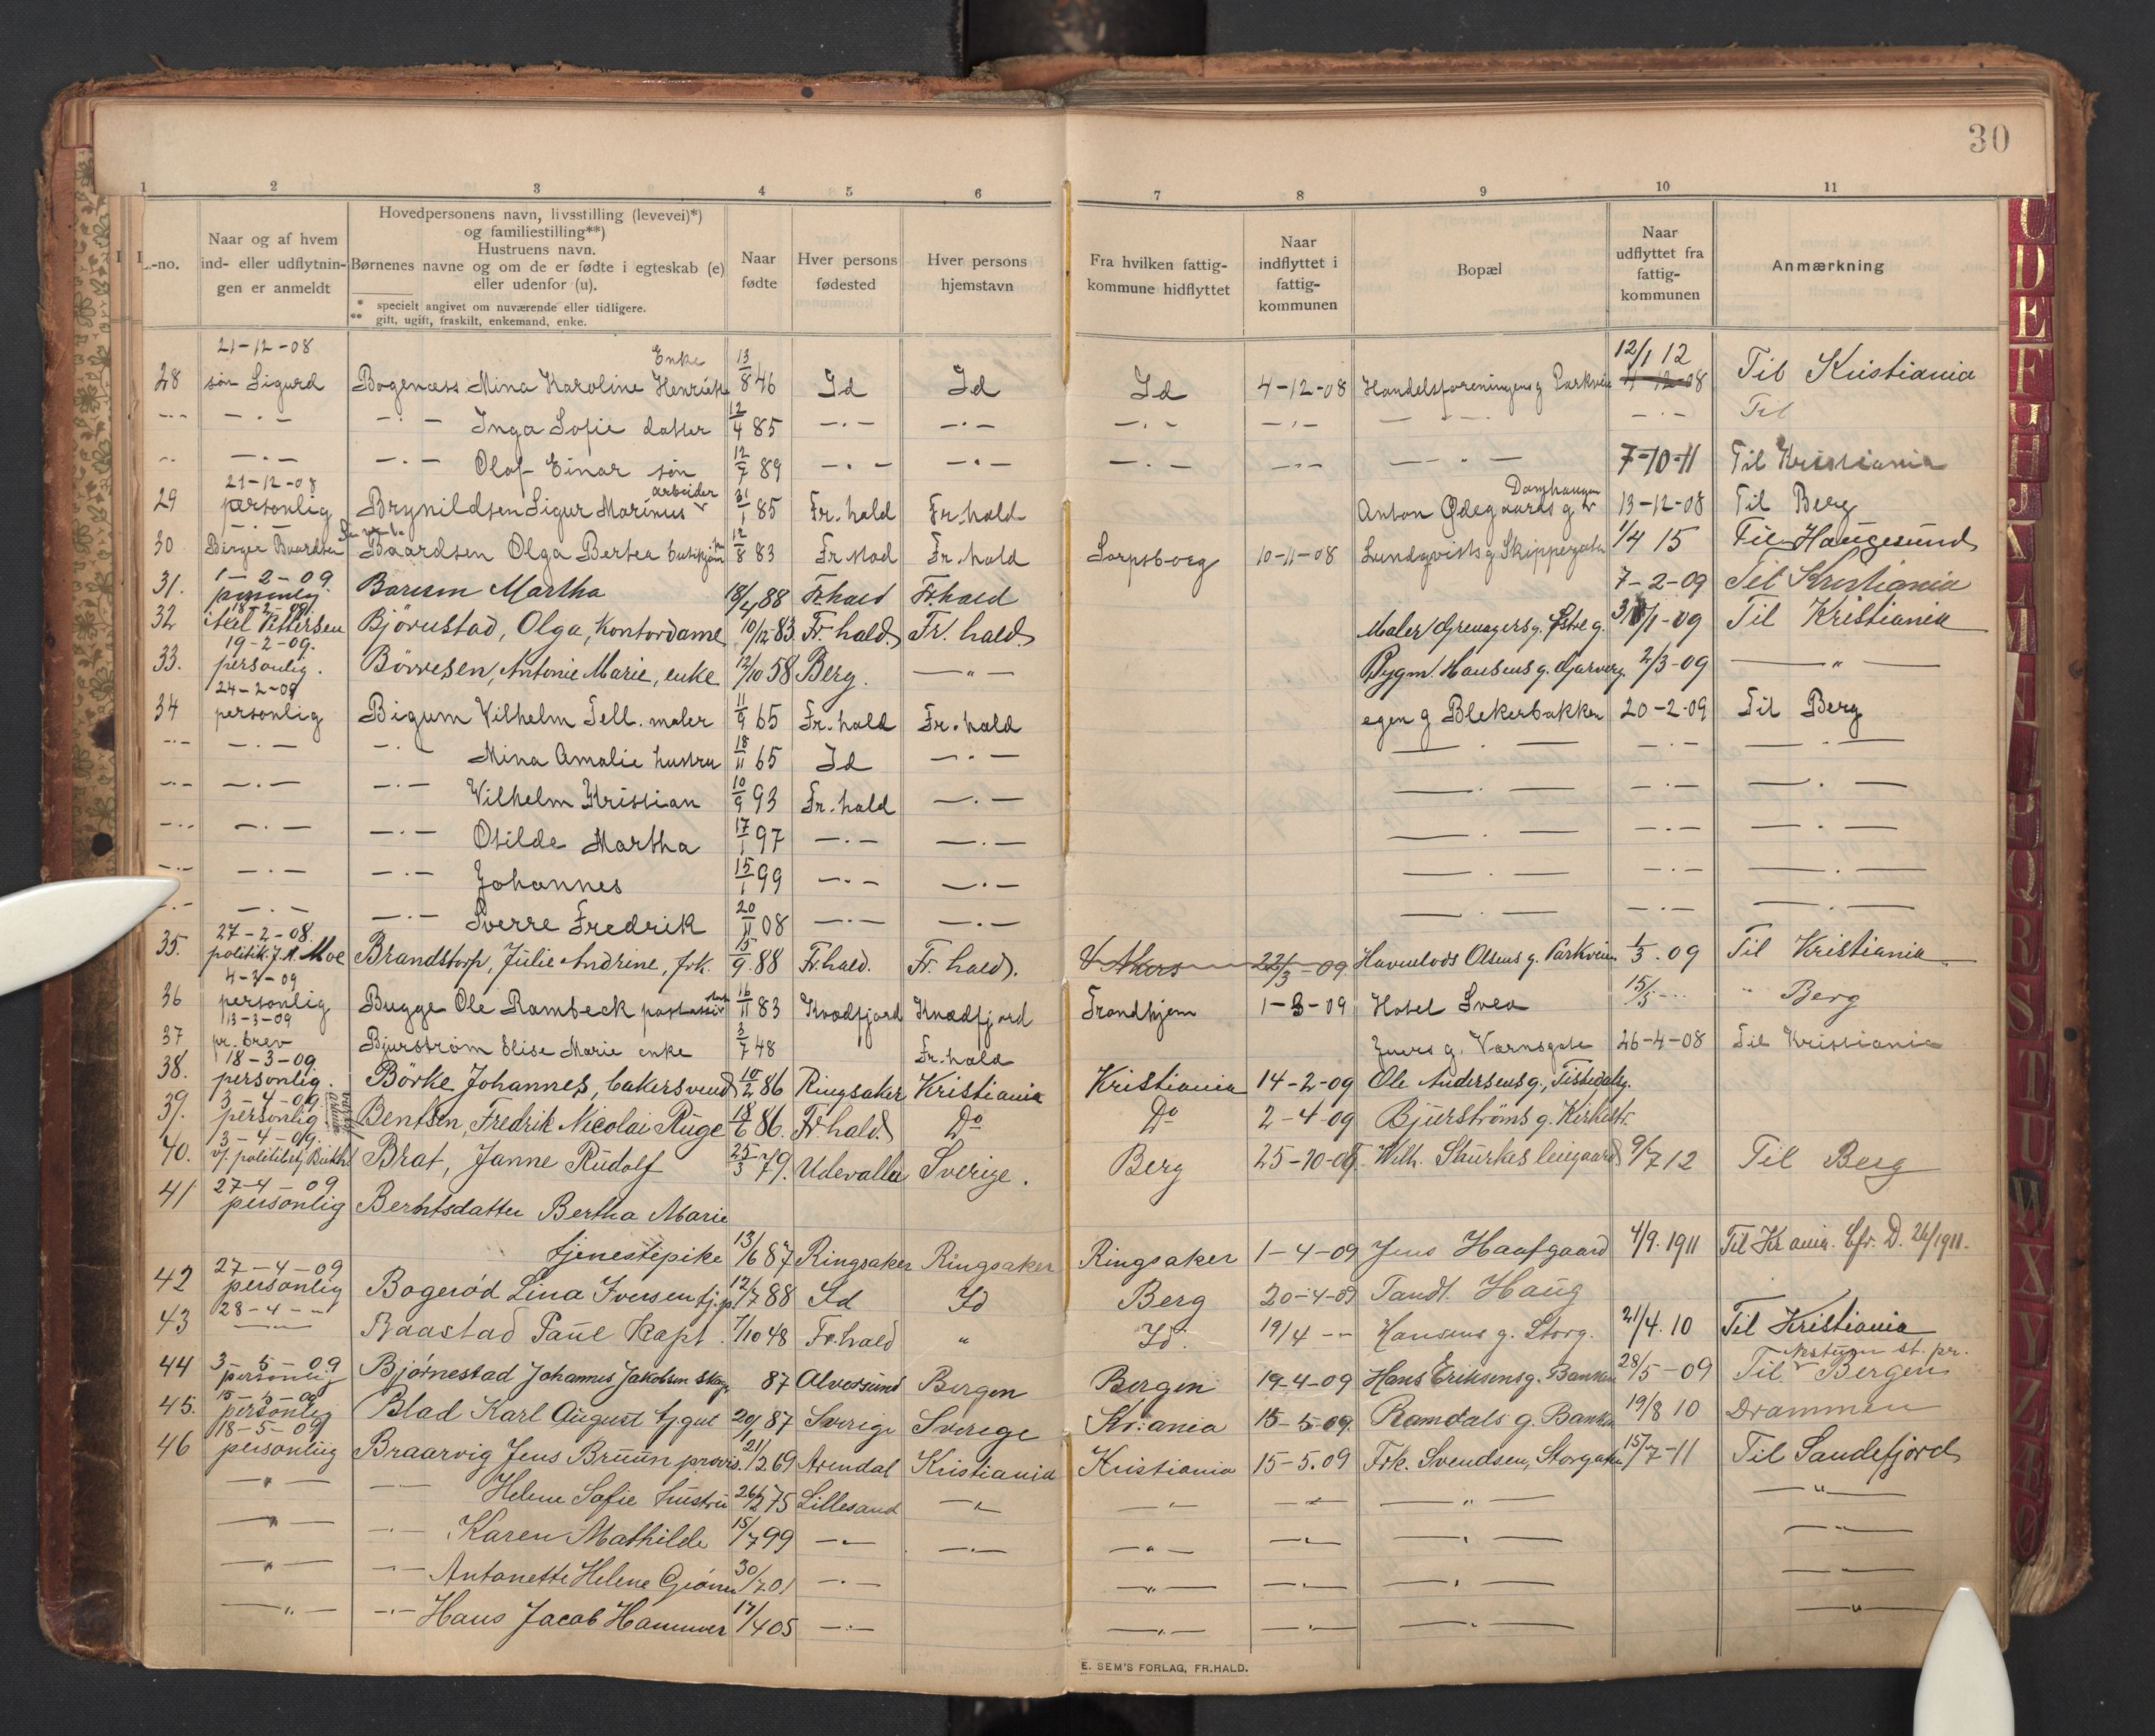 30
1 2 3 4 5 6 7 8 9 10 11
L.-no.
Naar og af hvem ind- eller udflytningen er anmeldt
Hovedpersonens navn, livsstilling (levevei)*) og familiestilling**)
Hustruens navn.
Børnenes navne og om de er fødte i egteskab (e) eller udenfor (u).
* specielt angivet om nuværende eller tidligere.
** gift, ugift, fraskilt, enkemand, enke.
Naar fødte
Hver persons fødested
Hver persons hjemstavn
Fra hvilken fattigkommune hidflyttet
Naar indflyttet i fattigkommunen
Bopæl
Naar udflyttet fra fattigkommunen
Anmærkning
21-12-08 Enke 12/1 12
28 søn Sigurd Bogenæss Mina Karoline Henrikke 13/8 46 Id Id Id 4-12-08 Handelsforeningens g Parkvei 4-12-08 Til Kristiania
-"- -"- -"- Inga Sofie datter 12/4 85 -"- -"- -"- -"- -"- -"- Til
-"- -"- -"- Olaf Einar søn 12/7 89 -"- -"- -"- -"- -"- 7-10-11 Til Kristiania
21-12-08 arbeider Damhaugen
29 personlig Brynildsen Sigur Marinus 31/1 85 Fr.hald Fr.hald Anton Ødegaards g 13-12-08 Til Berg
30 Birger Baardsen Baardsen Olga Bertea 12/8 83 Fr.stad Fr.hald Sarpsborg 10-11-08 Lundqvists g Skippergata 1/4 15 Til Haugesund
1-2-09
31. personlig Barum Martha 18/4 88 Fr.hald Fr.hald 7-2-09 Til Kristiania
18-2-09.
32 Axel Pettersen Björnstad, Olga, Kontordame 10/12 83. Fr. hald. Fr. hald. Maler Grenagers g. Østre g. 31/1-09 Til Kristiania
19-2-09.
33. personlig. Börresen, Antonie Marie, enke 12/10 58 Berg. -"- Bygm. Hansens g. Garverg. 2/3-09 -"-
24-2-09
34 personlig Bigum Vilhelm Tell. maler 11/9 65 Fr.hald Fr.hald egen g Blekerbakken 20-2-09 Til Berg
-"- -"- -"- Mina Amalie hustru 18/11 65 Id -"- -"- -"- -"-
-"- -"- -"- Vilhelm Kristian 10/9 93 Fr.hald -"- -"- -"- -"-
-"- -"- -"- Otilde Martha 17/1 97 -"- -"- -"- -"- -"-
-"- -"- -"- Johannes 15/1 99 -"- -"- -"- -"- -"-
-"- -"- -"- Sverre Fredrik 20/11 08 -"- -"- -"- -"- -"-
27-2-08.
35. politik. J. A. Moe Brandstorp, Julie Andrine, frk. 15/9 88 Fr.hald. Fr. hald. V. Akers 22/3-09. Havnelods Olsens g. Parkveien 1/3.09 Til Kristiania
4-3-09
36 personlig Bugge Ole Rambeck postassistent 16/11 83 Kvædfjord Kvædfjord Trondhjem 1-3-09 Hotel Svea 15/5 -"- " Berg
13-3-09
37 pr. brev Bjurstrøm Elise Marie enke 3/7 48 Fr.hald Juers g.Værnsgate 26-4-08 Til Kristiania
18-3-09
38. personlig. Börke Johannes, bakersvend 10/2 86 Ringsaker Kristiania Kristiania 14-2-09 Ole Andersens g., Tistedalsg.
3-4-09
39. personlig. Bentsen, Fredrik Nicolai Ruge 18/6 86. Fr.hald. Do Do 2-4-09 Bjurströms g. Kirkestr.
3-4-09.
40. v/ politibetj Brat, Janne Rudolf 25/3 79. Udevalla Sverige. Berg 25-10-08 Wilh. Sturkes leiegaard 9/7 12 Til Berg
27-4-09
41 personlig Berntsdatter Bertha Marie
tjenestepike 13/6 87 Ringsaker Ringsaker Ringsaker 1-4-09 Jens Haafgaard 4/9.1911 Til Kr.ania. Cfr. D. 26/1911.
27-4-09
42 personlig Bogerød Lina Iversen tj.p. 12/7 88 Id Id Berg 20-4-09 Tandl. Haug
28-4-"-
43 -"- Baastad Paul Kapt. 7/10 48 Fr.hald " Id. 19/4 -"- Hansens g. Storg. 21/4.10 Til Kristiania
Nestun st. pr.
44 3-5-09 personlig Bjørnestad Johannes Jakobsen 87 Alversund Bergen Bergen 19-4-09 Hans Eriksens g. Banken 28/5-09 Til Bergen
15-5-09
45. personlig Blad Karl August tj.gut 20/1 87 Sverige Sverige Kr.ania 15-5-09. Ramdals g. Banken 19/8 10 Drammen
18-5-09
46 personlig Braarvig Jens Bruun provis. 21/12 69 Arendal Kristiania Kristiania 15-5.09 Frk. Svendsen, Storgaten 15/7-11 Til Sandefjord
-"- -"- Helene Sofie hustru 26/2 75 Lillesand -"- -"- -"- -"- -"-
-"- -"- Karen Mathilde 15/7 99 -"- -"- -"- -"- -"- -"-
-"- -"- Antonette Helene 30/7 01 -"- -"- -"- -"- -"-
-"- -"- Hans Jacob Hammer 17/4 05 -"- -"- -"- -"- -"-
E. SEM'S FORLAG, FR.HALD.
U D E F G H J K L M N O P Q R S T U W X Y Z Æ Ø